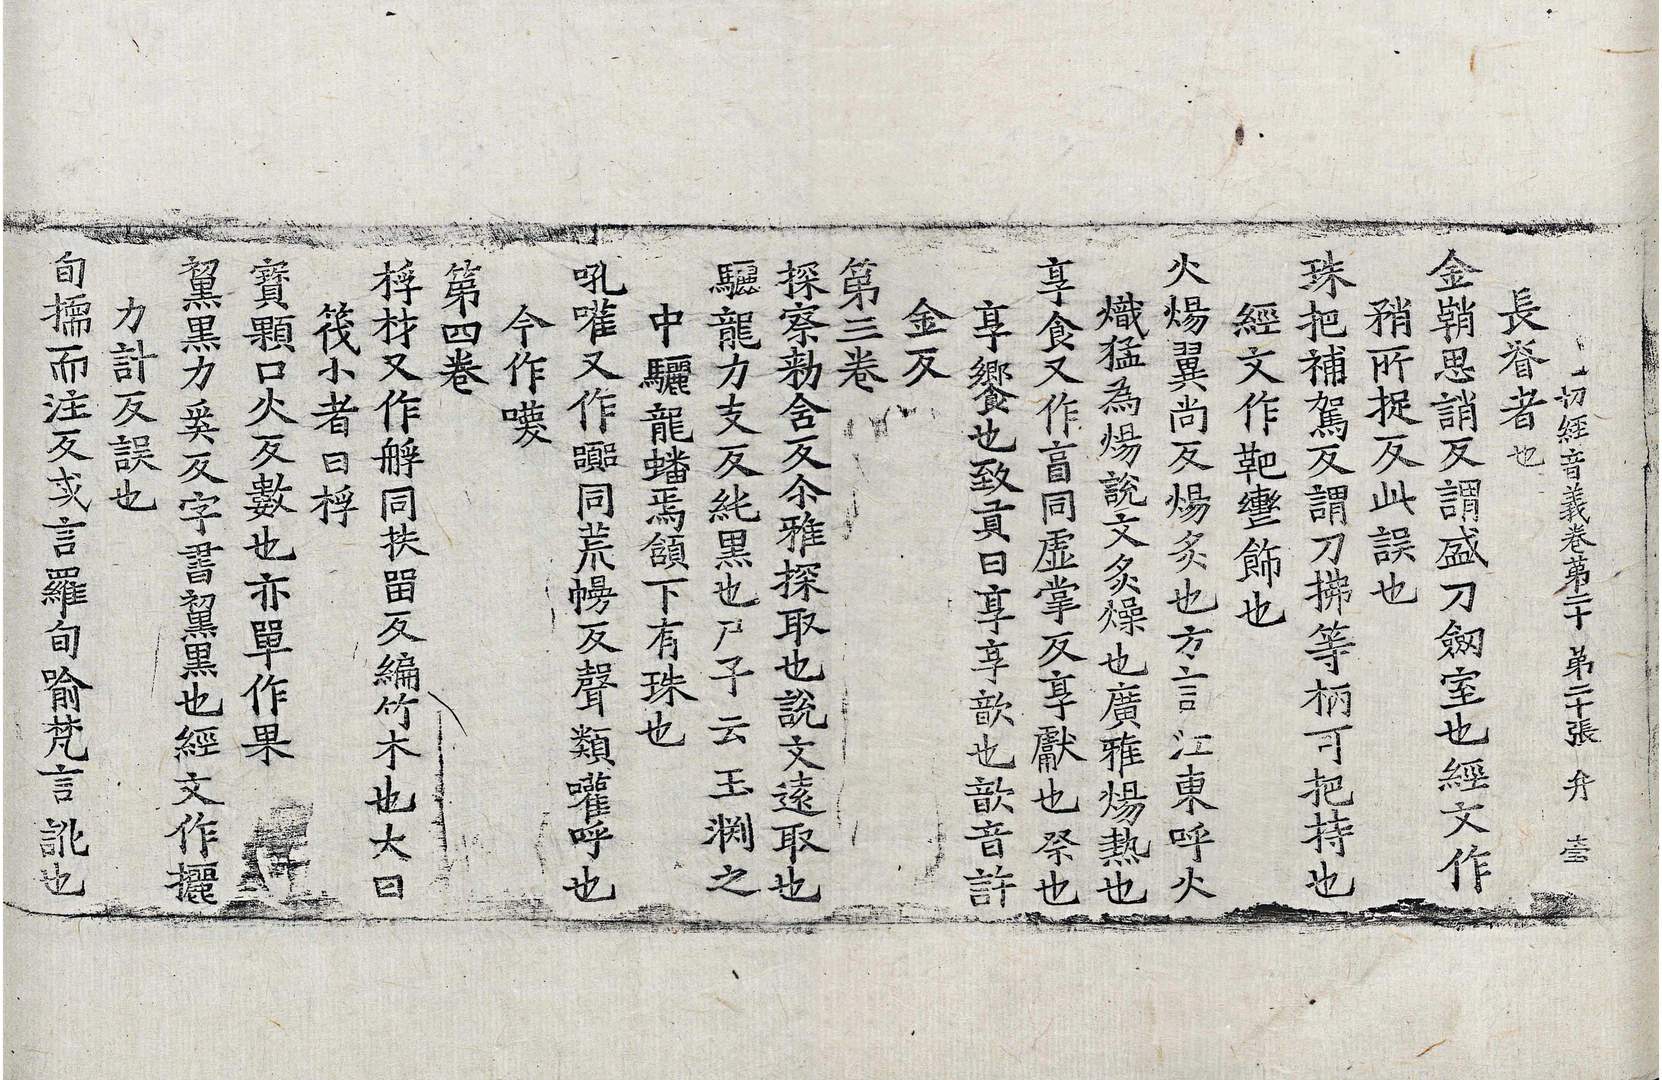 一切經音義卷第二十 第二十張 弁 壹
長眷者也
金鞘思誚反謂盛刀劒室也經文作
矟所捉反此誤也
珠把補駕反謂刀拂等柄可把持也
經文作靶轡飾也
火煬翼尚反煬炙也方言江東呼火
熾猛為煬說文炙燥也廣雅煬熱也
享食又作亯同虛掌反享獻也祭也
享饗也致貢曰享享歆也歆音許
金反
第三卷
探察勑含反尒雅探取也說文遠取也
驪龍力支反純黑也尸子云玉渊之
中驪龍蟠焉頷下有珠也
吼嚾又作嚻同荒幔反聲類嚾呼也
今作嚘
第四卷
桴材又作艀同扶留反編竹木也大曰
筏小者曰桴
寶顆口火反數也亦單作果
黧黑力奚反字書黧黑也經文作攦
力計反誤也
旬擩而注反或言羅旬喻梵言訛也